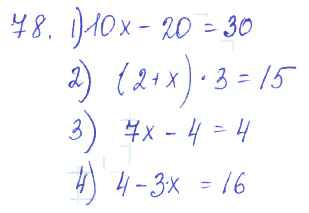 78. 1) 10x - 20 = 30
2) (2 + x) · 3 = 15
3) 7x - 4 = 4
4) 4 - 3·x = 16